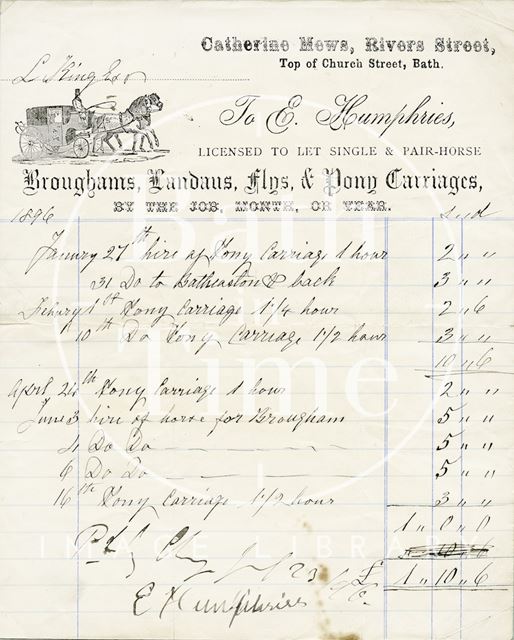 Catherine Mews, Rivers Street,
Top of Church Street, Bath.
L King Esqr
To E. Humphries,
LICENSED TO LET SINGLE & PAIR-HORSE
Broughams, Landaus, Flys, & Pony Carriages,
BY THE JOB, MONTH, OR YEAR.
1896 £ s d
Janury 27th hire of Pony Carriage 1 hour 2 " "
31 Do to Batheaston & back 3 " "
Febury 1st Pony Carriage 1 1/4 hour 2 " 6
10th Do Pony Carriage 1 1/2 hour 3 " "
10 " 6
April 24th Pony Carriage 1 hour 2 " "
June 3 hire of horse for Brougham 5 " "
4 Do Do 5 " "
6 Do Do 5 " "
16th Pony Carriage 1 1/2 hour 3 " "
1 " 0 " 0
10 " 6
£ 1 " 10 " 6
23
E Humphries
Bath in Time
IMAGE LIBRARY